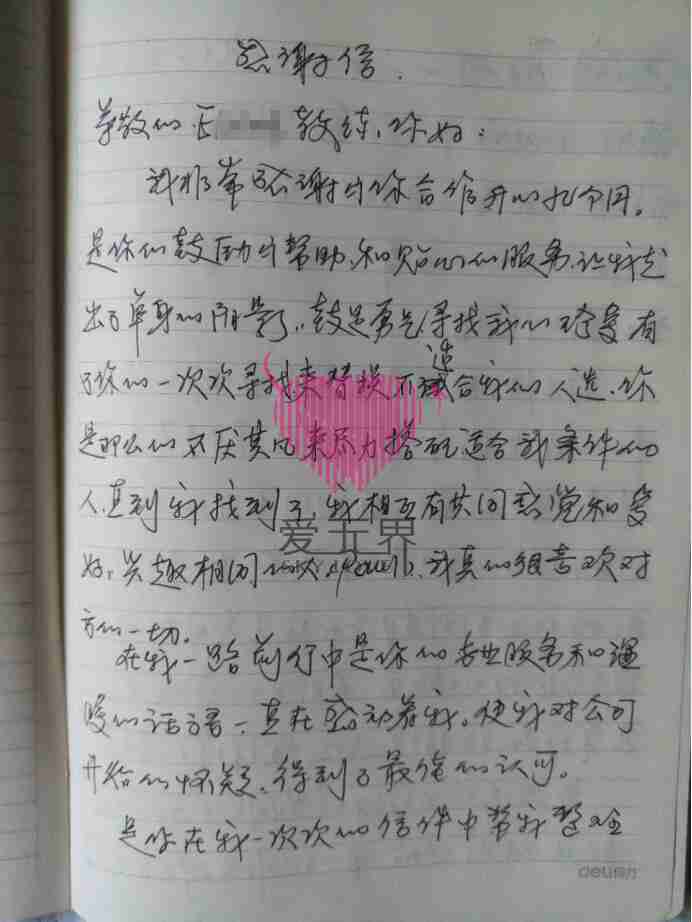 感谢信.
尊敬的王 教练,你好:
我非常感谢与你合作开的几个月。
是你们鼓励与帮助,和贴心的服务,让我走
出了单身的阴影,鼓足勇气寻找我的珍爱有
了你的一次次寻找来替换不适合我们人选,你
是那么的不厌其烦来尽力搭配适合我条件的
人,直到我找到了,我相互有共同感觉和爱
爱无界
好,兴趣相同 我真的很喜欢对
方的一切。
在我一路前行中是你的专业服务和温
暖的话语一直在感动着我。使我对公司
开始的怀疑,得到了最后的认可。
是你在我一次次的信件中帮我整
deli得力